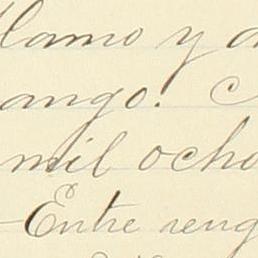 llamo y a
ango. C
mil ocho
Entre reng